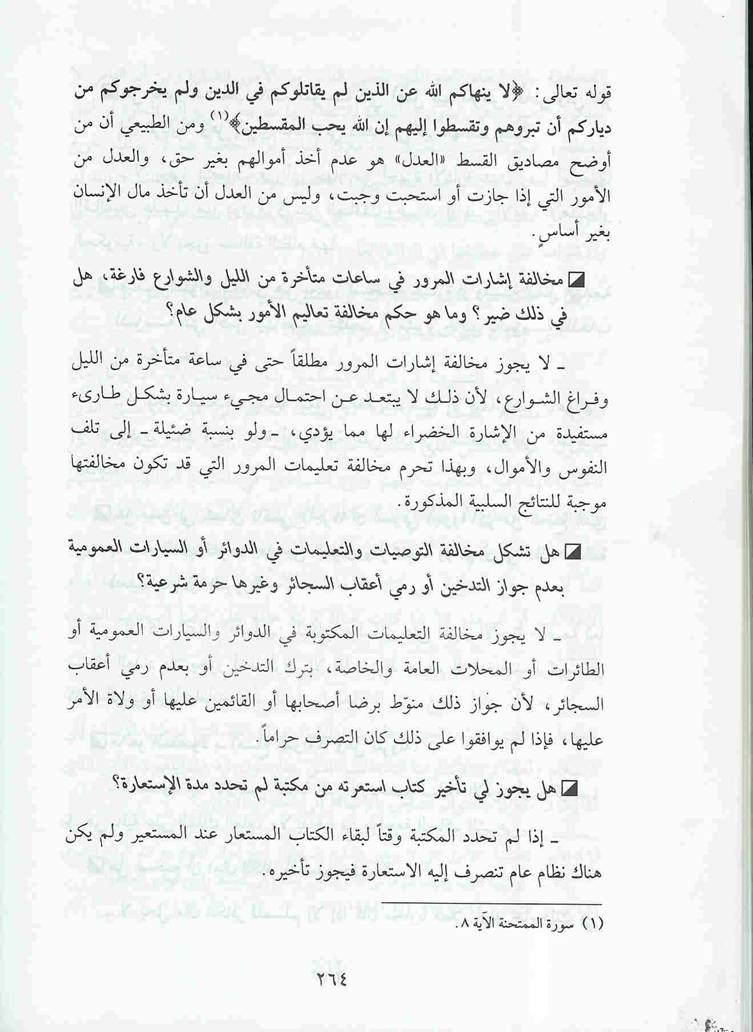 قوله تعالى: ﴿لا ينهاكم الله عن الذين لم يقاتلوكم في الدين ولم يخرجوكم من
دياركم أن تبروهم وتقسطوا إليهم إن الله يحب المقسطين﴾(١) ومن الطبيعي أن من
أوضح مصاديق القسط «العدل» هو عدم أخذ أموالهم بغير حق، والعدل من
الأمور التي إذا جازت أو استحبت وجبت، وليس من العدل أن تأخذ مال الإنسان
بغير أساسٍ.
◪ مخالفة إشارات المرور في ساعات متأخرة من الليل والشوارع فارغة، هل
في ذلك ضير؟ وما هو حكم مخالفة تعاليم الأمور بشكل عام؟
ـ لا يجوز مخالفة إشارات المرور مطلقاً حتى في ساعة متأخرة من الليل
وفراغ الشوارع، لأن ذلك لا يبتعد عن احتمال مجيء سيارة بشكل طارىء
مستفيدة من الإشارة الخضراء لها مما يؤدي، ـ ولو بنسبة ضئيلة ـ إلى تلف
النفوس والأموال، وبهذا تحرم مخالفة تعليمات المرور التي قد تكون مخالفتها
موجبة للنتائج السلبية المذكورة.
◪ هل تشكل مخالفة التوصيات والتعليمات في الدوائر أو السيارات العمومية
بعدم جواز التدخين أو رمي أعقاب السجائر وغيرها حرمة شرعية؟
ـ لا يجوز مخالفة التعليمات المكتوبة في الدوائر والسيارات العمومية أو
الطائرات أو المحلات العامة والخاصة، بترك التدخين أو بعدم رمي أعقاب
السجائر، لأن جواز ذلك منوّط برضا أصحابها أو القائمين عليها أو ولاة الأمر
عليها، فإذا لم يوافقوا على ذلك كان التصرف حراماً.
◪ هل يجوز لي تأخير كتاب استعرته من مكتبة لم تحدد مدة الإستعارة؟
ـ إذا لم تحدد المكتبة وقتاً لبقاء الكتاب المستعار عند المستعير ولم يكن
هناك نظام عام تنصرف إليه الاستعارة فيجوز تأخيره.
(١) سورة الممتحنة الآية ٨.
٢٦٤